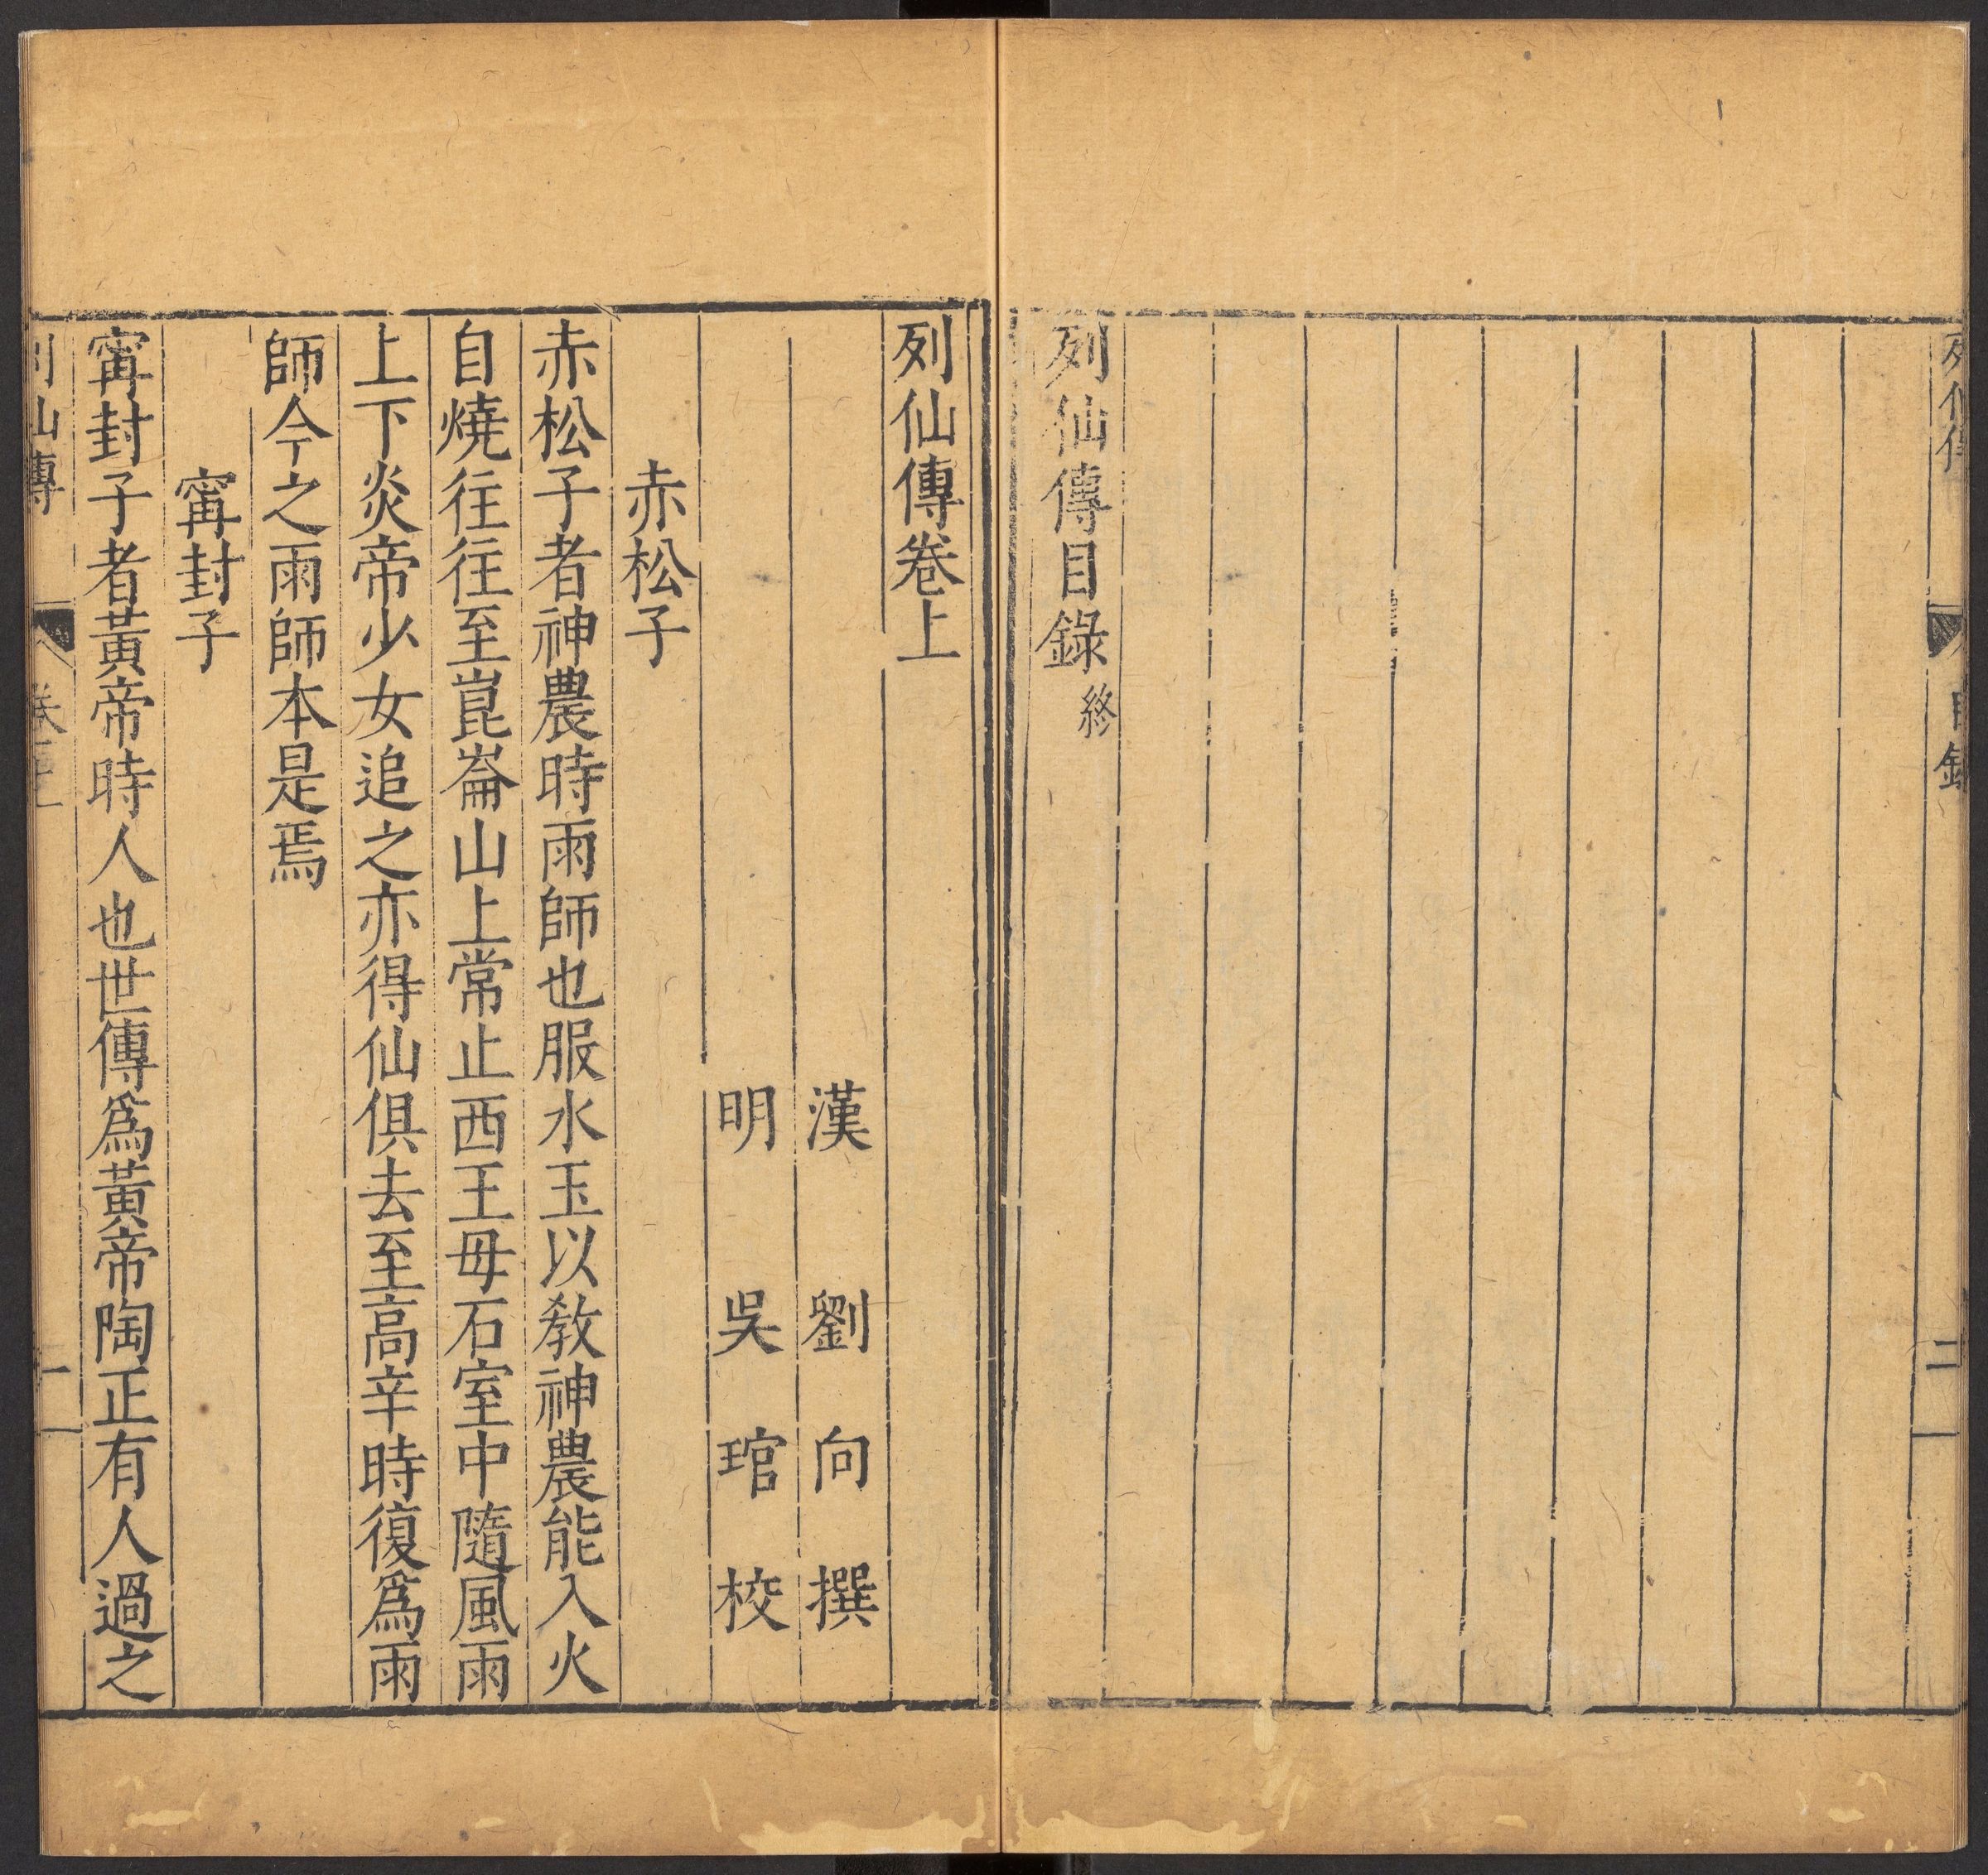 列仙傳
目錄
二
列仙傳目錄終
列仙傳卷上
漢劉向撰
明吳琯校
赤松子
赤松子者神農時雨師也服水玉以敎神農能入火
自燒往往至崑崙山上常止西王母石室中隨風雨
上下炎帝少女追之亦得仙俱去至高辛時復爲雨
師今之雨師本是焉
甯封子
甯封子者黃帝時人也世傳爲黃帝陶正有人過之
列仙傳
卷上
一